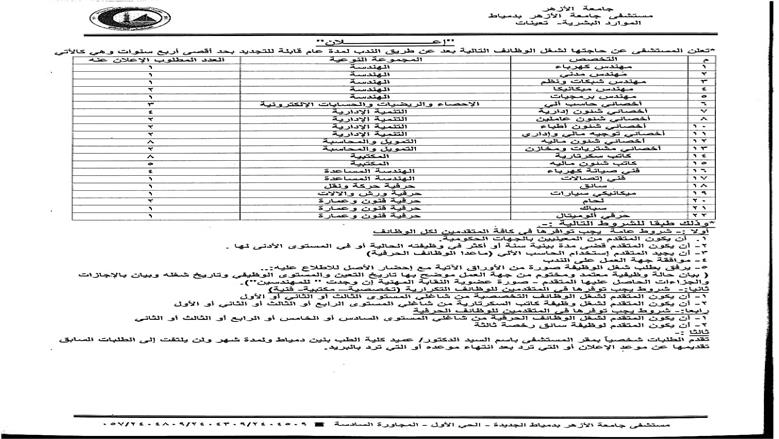 جامعة الأزهر
مستشفى جامعة الأزهر بدمياط
الموارد البشرية- تعيينات
"إعـــــلان"
*تعلن المستشفى عن حاجتها لشغل الوظائف التالية بعد عن طريق الندب لمدة عام قابلة للتجديد بحد أقصى أربع سنوات وهي كالأتي
م التخصص المجموعة النوعية العدد المطلوب الإعلان عنه
١ مهندس كهرباء الهندسة ١
٢ مهندس مدني الهندسة ١
٣ مهندس شبكات ونظم الهندسة ١
٤ مهندس ميكانيكا الهندسة ٢
٥ مهندس برمجيات الهندسة ١
٦ أخصائي حاسب ألي الإحصاء والرياضيات والحسابات الإلكترونية ٣
٧ أخصائي شئون إدارية التنمية الإدارية ٤
٨ أخصائي شئون عاملين التنمية الإدارية ٢
١٠ أخصائي شئون أطباء التنمية الإدارية ٢
١١ أخصائي توجيه مالي وإداري التنمية الإدارية ٢
١٢ أخصائي شئون ماليه التمويل والمحاسبة ٨
١٣ أخصائي مشتريات ومخازن التمويل والمحاسبة ٢
١٤ كاتب سكرتارية المكتبية ٨
١٥ كاتب شئون ماليه المكتبية ٥
١٦ فني صيانة كهرباء الهندسة المساعدة ٤
١٧ فني إتصالات الهندسة المساعدة ١
١٨ سائق حرفية حركة ونقل ١
١٩ ميكانيكي سيارات حرفية ورش والآلات ١
٢٠ لحام حرفية فنون وعمارة ٢
٢١ سباك حرفية فنون وعمارة ١
٢٢ حرفي ألوميتال حرفية فنون وعمارة ١
*وذلك طبقا للشروط التالية :-
أولا :- شروط عامة يجب توافرها في كافة المتقدمين لكل الوظائف
١. أن يكون المتقدم من المعينين بالجهات الحكومية.
٢- أن يكون المتقدم قضى مدة بينية سنة أو أكثر في وظيفته الحالية أو في المستوى الأدنى لها .
٣- أن يجيد المتقدم إستخدام الحاسب الألي (ماعدا الوظائف الحرفية)
٤- موافقة جهة العمل على الندب
٥- يرفق بطلب شغل الوظيفة صورة من الأوراق الأتية مع إحضار الأصل للاطلاع عليه:-
( بيان حالة وظيفية معتمد ومختوم من جهة العمل موضح بها تاريخ التعين والمستوى الوظيفي وتاريخ شغله وبيان بالإجازات
والجزاءات الحاصل عليها المتقدم – صورة عضوية النقابة المهنية إن وجدت "للمهندسين").
ثانيا:- شروط يجب توفرها في المتقدمين للوظائف التكرارية (تخصصية – مكتبية- فنية)
١- أن يكون المتقدم لشغل الوظائف التخصصية من شاغلي المستوى الثالث أو الثاني أو الأول
٢- أن يكون المتقدم لشغل وظيفة كاتب السكرتارية من شاغلي المستوى الرابع أو الثالث أو الثاني أو الأول
رابعا:- شروط يجب توفرها في المتقدمين للوظائف الحرفية
١- أن يكون المتقدم لشغل الوظائف الحرفية من شاغلي المستوى السادس أو الخامس أو الرابع أو الثالث أو الثاني
٢- أن يكون المتقدم لوظيفة سائق رخصة ثالثة
ثالثا :-
تقدم الطلبات شخصياً بمقر المستشفى باسم السيد الدكتور/ عميد كلية الطب بنين دمياط ولمدة شهر ولن يلتفت إلى الطلبات السابق
تقديمها عن موعد الإعلان أو التي ترد بعد انتهاء موعده أو التي ترد بالبريد.
مستشفى جامعة الأزهر بدمياط الجديدة – الحي الأول – المجاورة السادسة ■ ٠٥٧/٢٤٠٤٨٠٩/٢٤٠٤٣٠٩/٢٤٠٤٥٠٩